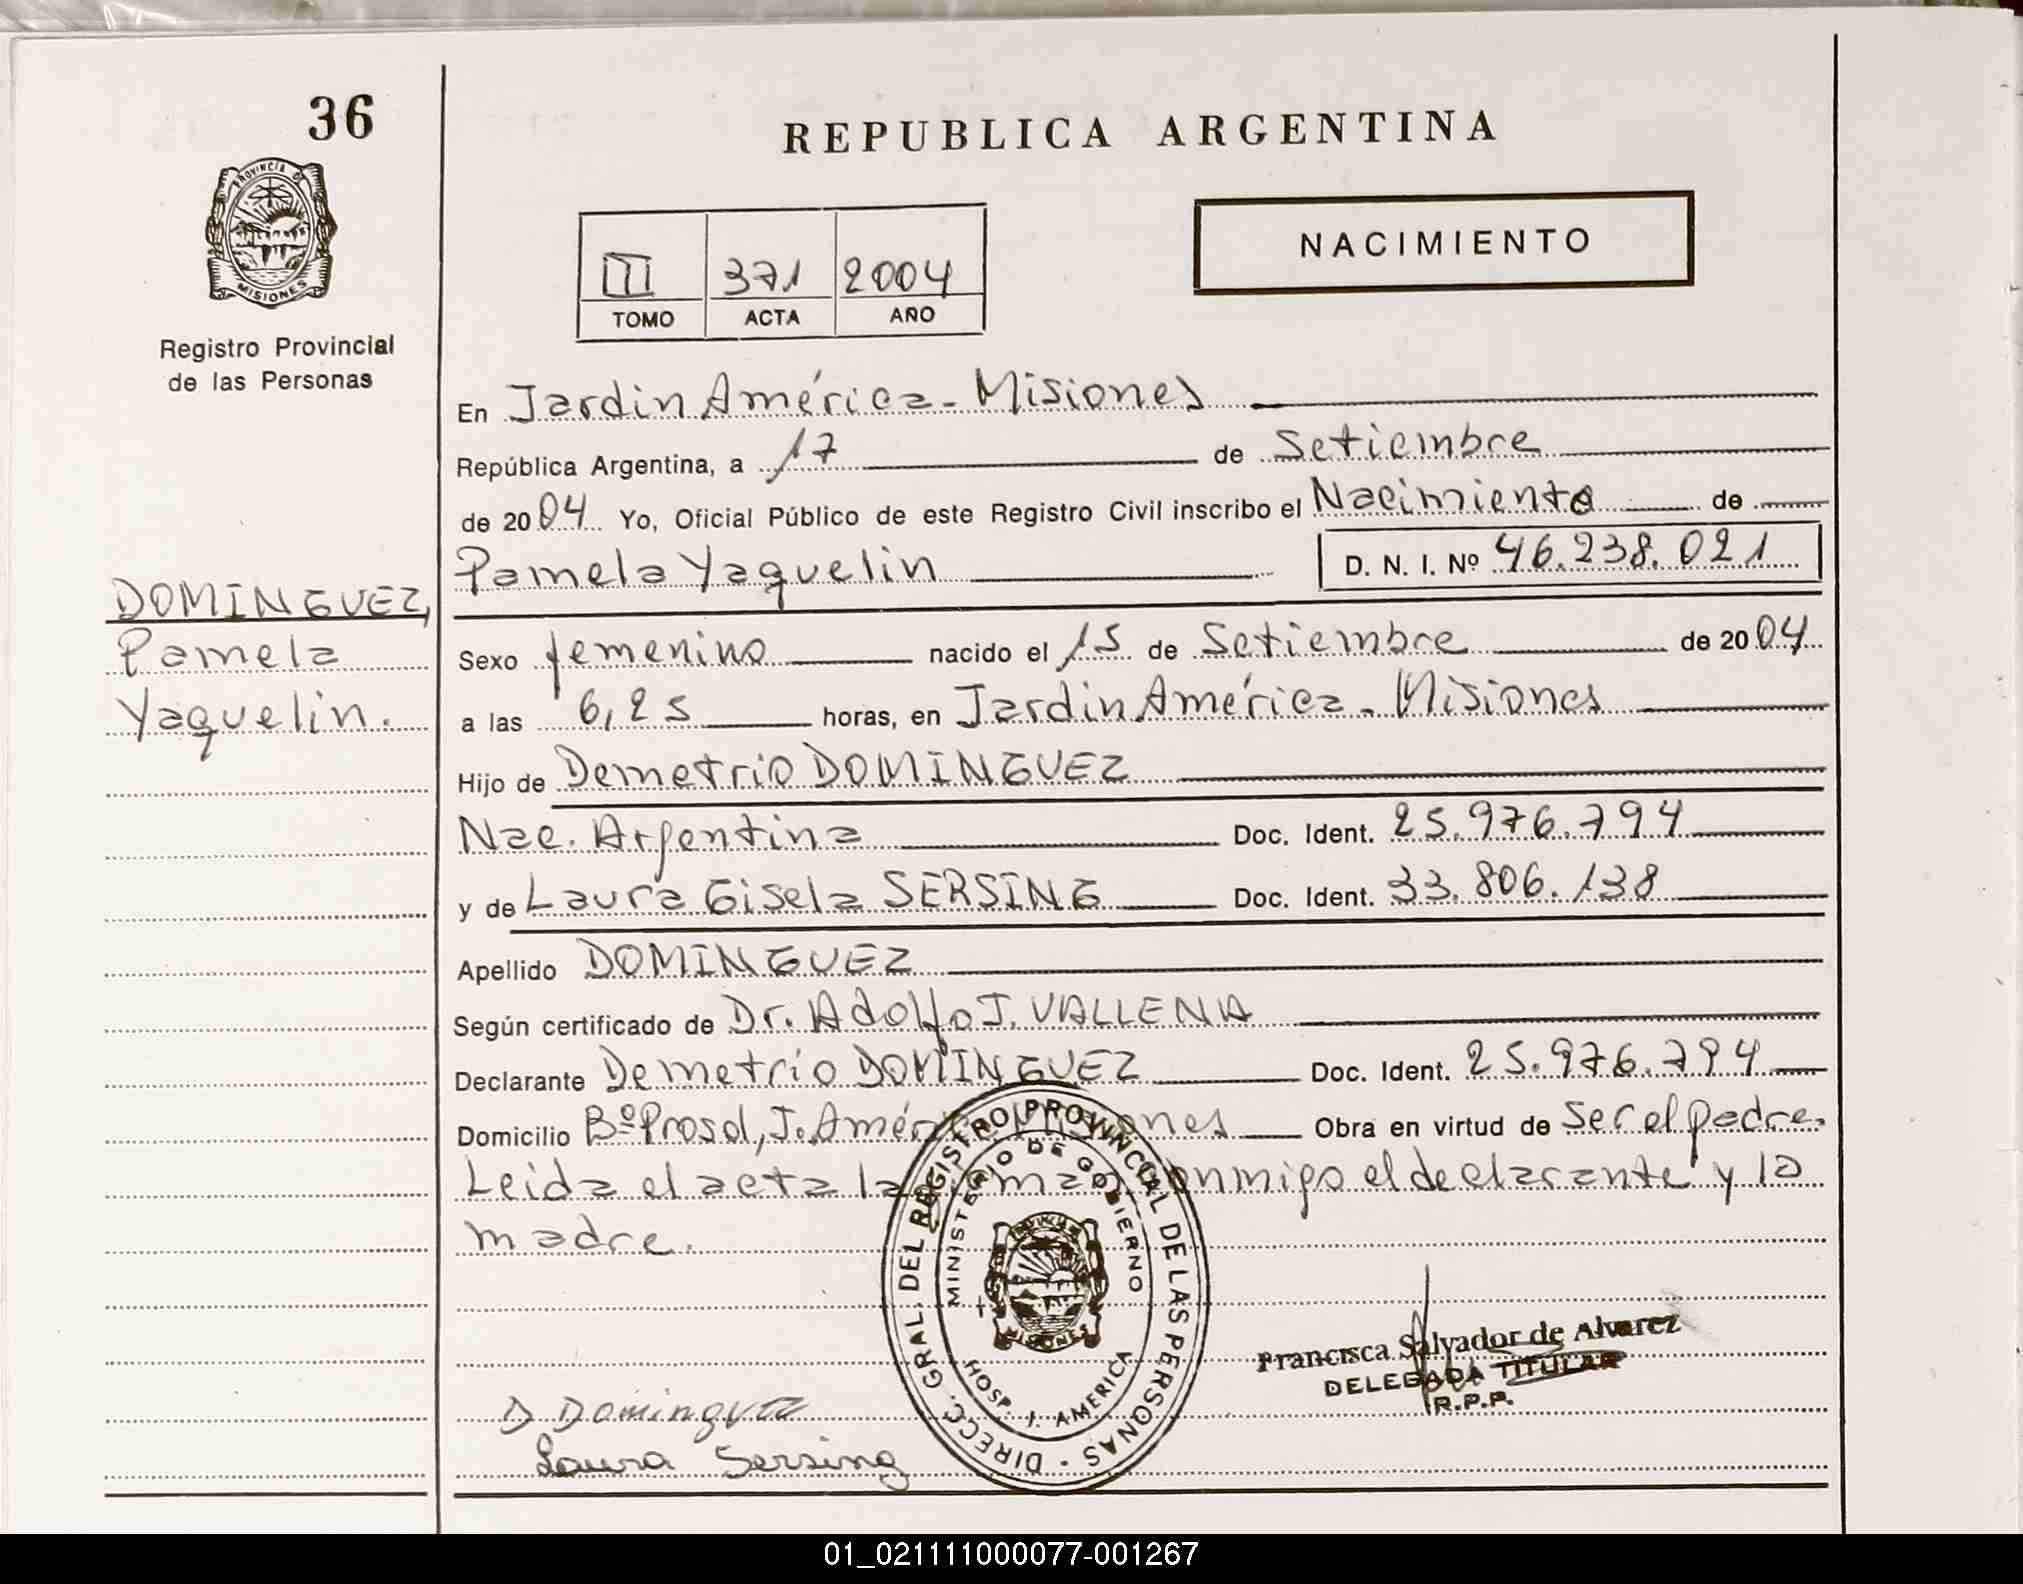 36
REPUBLICA ARGENTINA
PROVINCIA DE
MISIONES
Registro Provincial
de las Personas
NACIMIENTO
II 371 2004
TOMO ACTA AÑO
En Jardin América - Misiones
República Argentina, a 17 de Setiembre
de 2004 Yo, Oficial Público de este Registro Civil inscribo el Nacimiento de
Pamela Yaquelin D. N. I. Nº 46.238.021
DOMINGUEZ,
Pamela
Yaquelin.
Sexo femenino nacido el 15 de Setiembre de 2004
a las 6,25 horas, en Jardin América - Misiones
Hijo de Demetrio DOMINGUEZ
Nac. Argentina Doc. Ident. 25.976.794
y de Laura Gisela SERSING Doc. Ident. 33.806.138
Apellido DOMINGUEZ
Según certificado de Dr. Adolfo J. VALLENA
Declarante Demetrio DOMINGUEZ Doc. Ident. 25.976.794
Domicilio Bº Prosol, J. América Misiones Obra en virtud de ser el padre.
Leida el acta la firman conmigo el declarante y la
madre.
DIRECC. GRAL. DEL REGISTRO PROVINCIAL DE LAS PERSONAS
MINISTERIO DE GOBIERNO
MISIONES
HOSP. J. AMERICA
Francisca Salvador de Alvarez
DELEGADA TITULAR
R.P.P.
D Dominguez
Laura Sersing
01_021111000077-001267